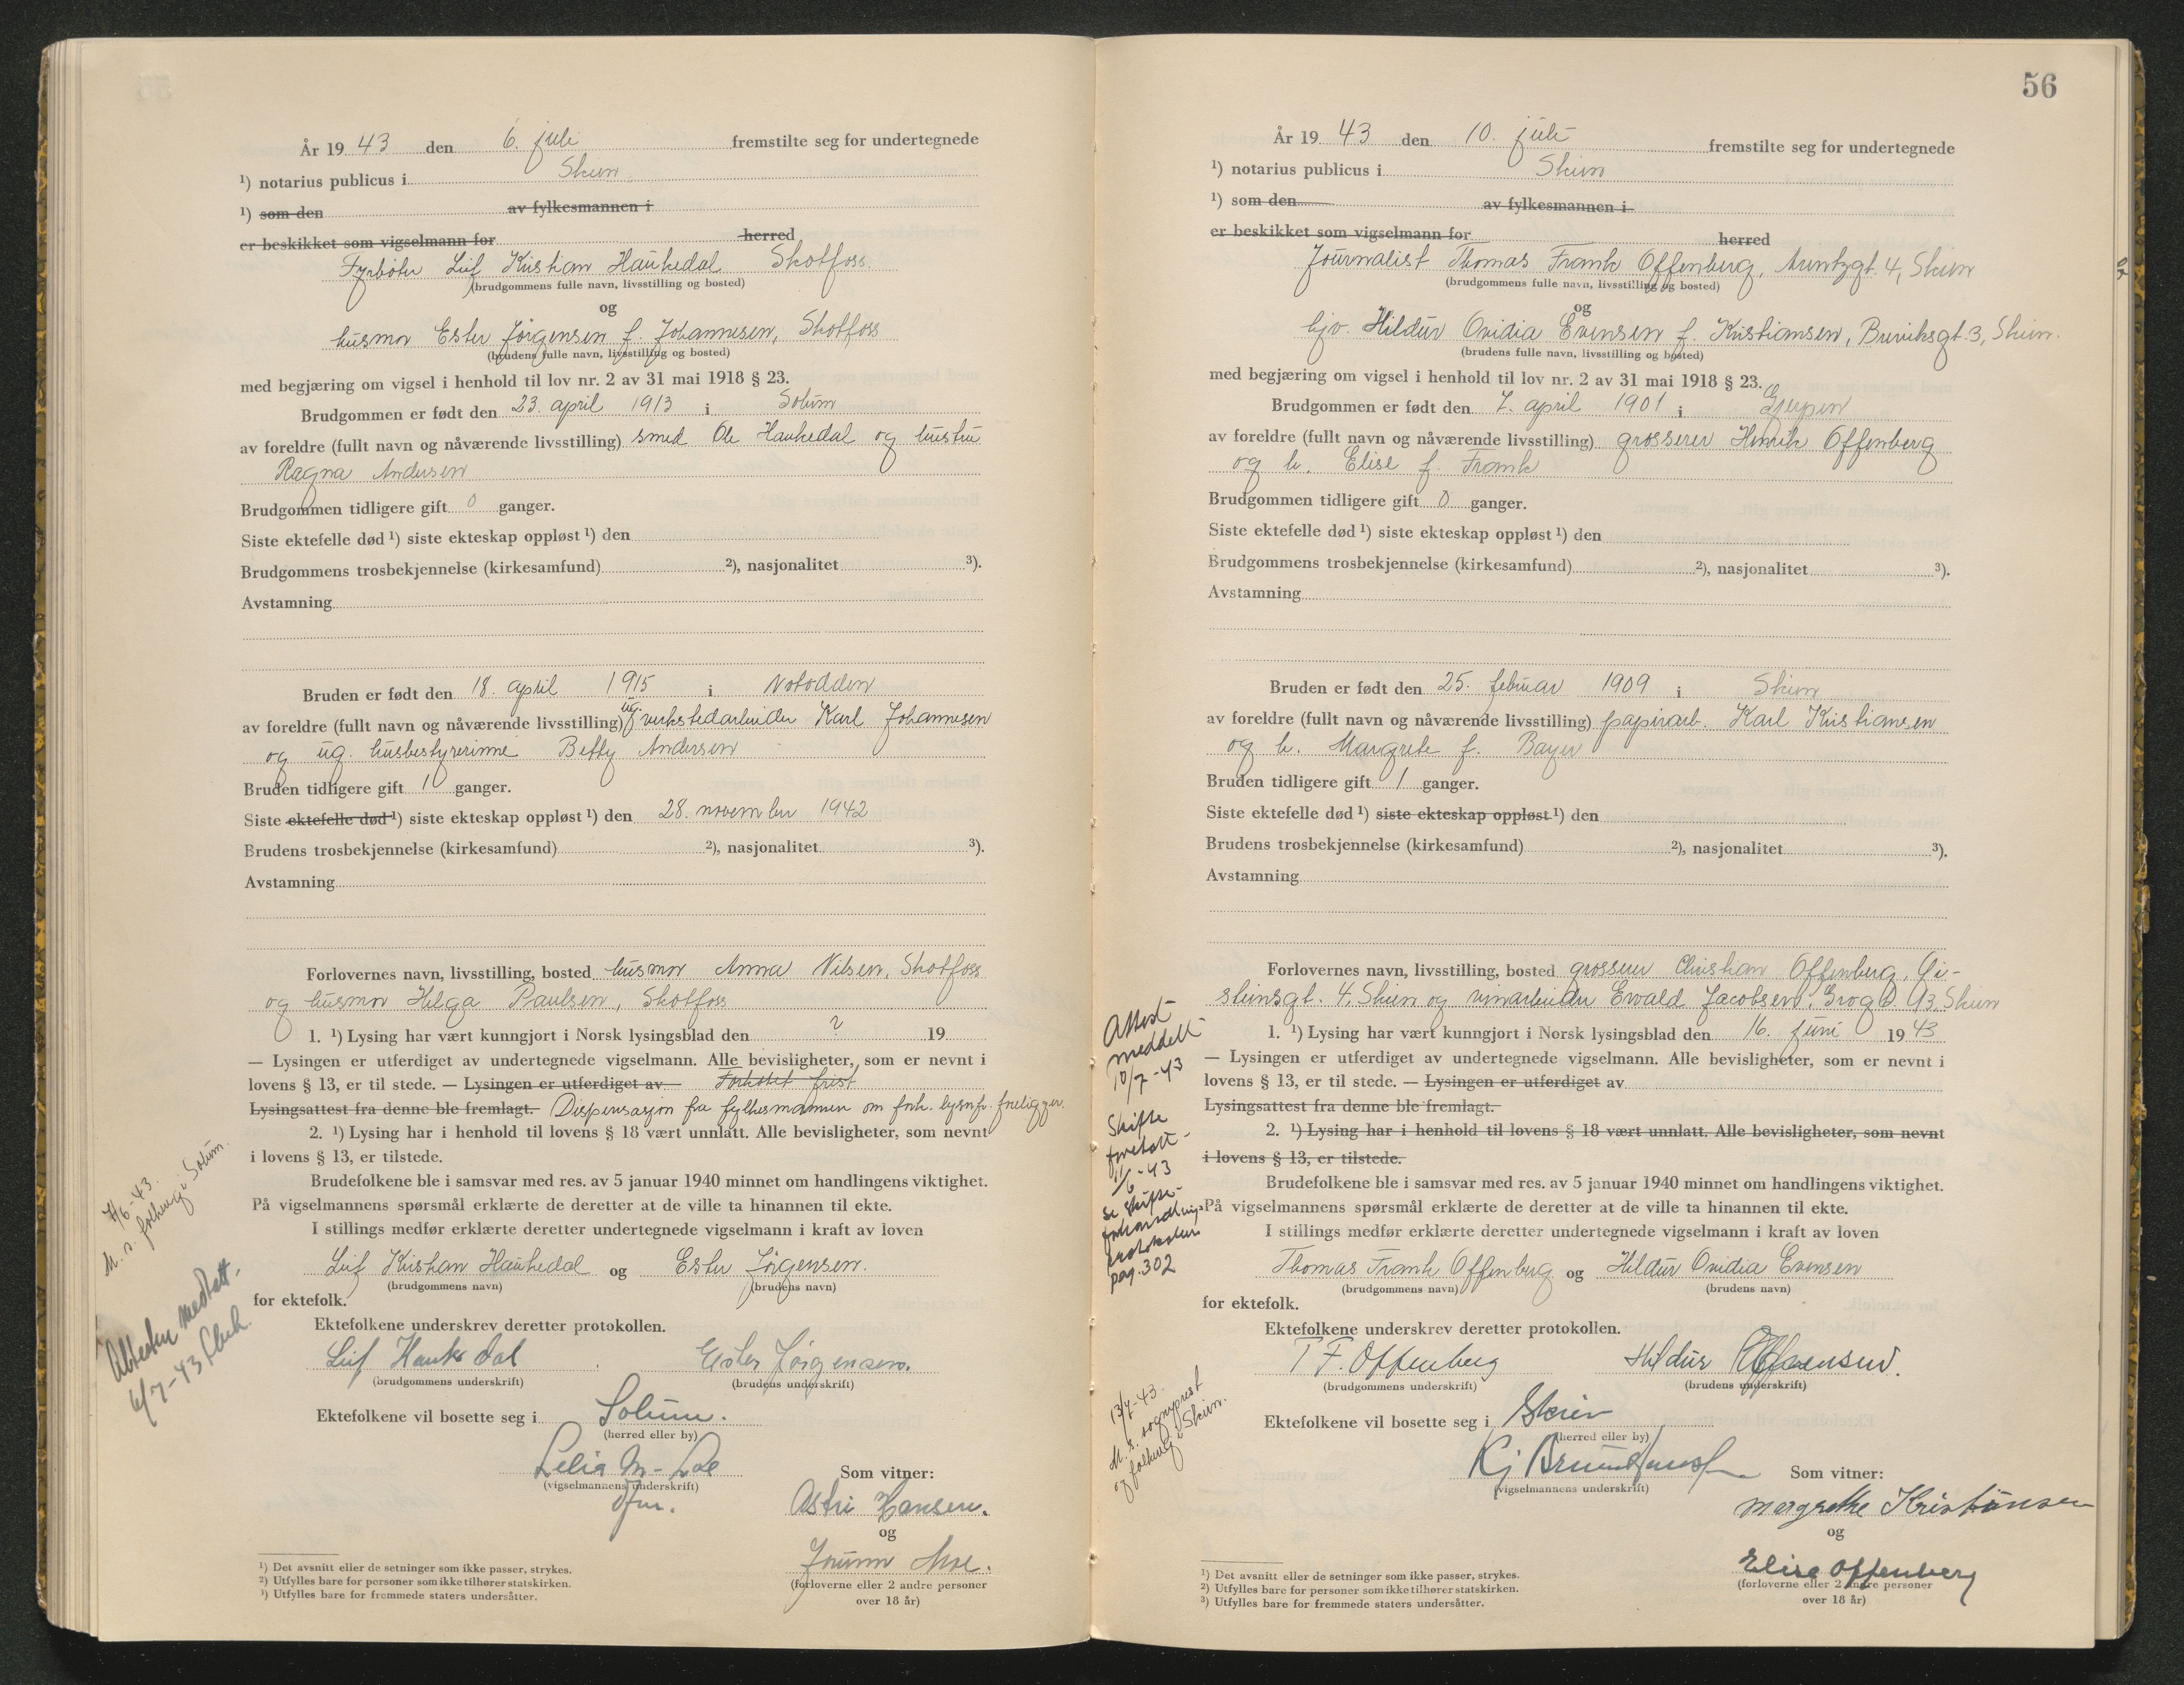 År 19 43 den 6. juli fremstilte seg for undertegnede
¹) notarius publicus i Skien
¹) som den av fylkesmannen i
er beskikket som vigselmann for herred
Fyrbøter Leif Kristian Haukedal Skotfoss
(brudgommens fulle navn, livsstilling og bosted)
og
husmor Ester Jørgensen f. Johannesen, Skotfoss
(brudens fulle navn, livsstilling og bosted)
med begjæring om vigsel i henhold til lov nr. 2 av 31 mai 1918 § 23.
Brudgommen er født den 23. april 1913 i Solum
av foreldre (fullt navn og nåværende livsstilling) smed Ole Haukedal og hustru
Ragna Andersen
Brudgommen tidligere gift 0 ganger.
Siste ektefelle død ¹) siste ekteskap oppløst ¹) den
Brudgommens trosbekjennelse (kirkesamfund) ²), nasjonalitet ³).
Avstamning
Bruden er født den 18. april 1915 i Notodden
av foreldre (fullt navn og nåværende livsstilling) ug. verkstedarbeider Karl Johannesen
og ug. husbestyrerinne Betty Andersen
Bruden tidligere gift 1 ganger.
Siste ektefelle død ¹) siste ekteskap oppløst ¹) den 28. november 1942
Brudens trosbekjennelse (kirkesamfund) ²), nasjonalitet ³).
Avstamning
Forlovernes navn, livsstilling, bosted husmor Anna Nilsen, Skotfoss
og husmor Helga Paulsen, Skotfoss
1. ¹) Lysing har vært kunngjort i Norsk lysingsblad den ? 19
— Lysingen er utferdiget av undertegnede vigselmann. Alle bevisligheter, som er nevnt i
lovens § 13, er til stede. — Lysingen er utferdiget av Forkortet frist
Lysingsattest fra denne ble fremlagt. Dispensasjon fra fylkesmannen om fork. lysnfr. foreligger.
2. ¹) Lysing har i henhold til lovens § 18 vært unnlatt. Alle bevisligheter, som nevnt
i lovens § 13, er tilstede.
Brudefolkene ble i samsvar med res. av 5 januar 1940 minnet om handlingens viktighet.
På vigselmannens spørsmål erklærte de deretter at de ville ta hinannen til ekte.
I stillings medfør erklærte deretter undertegnede vigselmann i kraft av loven
Leif Kristian Haukedal og Ester Jørgensen.
(brudgommens navn) (brudens navn)
for ektefolk.
Ektefolkene underskrev deretter protokollen.
Leif Haukedal Ester Jørgensen.
(brudgommens underskrift) (brudens underskrift)
Ektefolkene vil bosette seg i Solum.
(herred eller by)
(vigselmannens underskrift)
Som vitner:
Astri Hansen.
og
Jorunn Moe.
(forloverne eller 2 andre personer
over 18 år)
¹) Det avsnitt eller de setninger som ikke passer, strykes.
²) Utfylles bare for personer som ikke tilhører statskirken.
³) Utfylles bare for fremmede staters undersåtter.
M. s. folkereg. i Solum.
6/7-43
56
År 19 43 den 10. juli fremstilte seg for undertegnede
¹) notarius publicus i Skien
¹) som den av fylkesmannen i
er beskikket som vigselmann for herred
Journalist Thomas Frank Offenberg, Arentzgt. 4, Skien
(brudgommens fulle navn, livsstilling og bosted)
og
hjv. Hildur Ovidia Evensen f. Kristiansen, Breviksgt. 3, Skien.
(brudens fulle navn, livsstilling og bosted)
med begjæring om vigsel i henhold til lov nr. 2 av 31 mai 1918 § 23.
Brudgommen er født den 7. april 1901 i Gjerpen
av foreldre (fullt navn og nåværende livsstilling) grosserer Henrik Offenberg
og h. Elise f. Frank
Brudgommen tidligere gift 0 ganger.
Siste ektefelle død ¹) siste ekteskap oppløst ¹) den
Brudgommens trosbekjennelse (kirkesamfund) ²), nasjonalitet ³).
Avstamning
Bruden er født den 25. februar 1909 i Skien
av foreldre (fullt navn og nåværende livsstilling) papirarb. Karl Kristiansen
og h. Margrete f. Bayer
Bruden tidligere gift 1 ganger.
Siste ektefelle død ¹) siste ekteskap oppløst ¹) den
Brudens trosbekjennelse (kirkesamfund) ²), nasjonalitet ³).
Avstamning
Forlovernes navn, livsstilling, bosted grosserer Christian Offenberg, Gi-
steinsgt. 4, Skien og vinarbeider Ewald Jacobsen, Skien
1. ¹) Lysing har vært kunngjort i Norsk lysingsblad den 16. juni 19 43
— Lysingen er utferdiget av undertegnede vigselmann. Alle bevisligheter, som er nevnt i
lovens § 13, er til stede. — Lysingen er utferdiget av
Lysingsattest fra denne ble fremlagt.
2. ¹) Lysing har i henhold til lovens § 18 vært unnlatt. Alle bevisligheter, som nevnt
i lovens § 13, er tilstede.
Brudefolkene ble i samsvar med res. av 5 januar 1940 minnet om handlingens viktighet.
På vigselmannens spørsmål erklærte de deretter at de ville ta hinannen til ekte.
I stillings medfør erklærte deretter undertegnede vigselmann i kraft av loven
Thomas Frank Offenberg og Hildur Ovidia Evensen
(brudgommens navn) (brudens navn)
for ektefolk.
Ektefolkene underskrev deretter protokollen.
T F. Offenberg Hildur
(brudgommens underskrift) (brudens underskrift)
Ektefolkene vil bosette seg i Skien
(herred eller by)
(vigselmannens underskrift)
Som vitner:
Margrethe Kristiansen
og
Elise Offenberg
(forloverne eller 2 andre personer
over 18 år)
¹) Det avsnitt eller de setninger som ikke passer, strykes.
²) Utfylles bare for personer som ikke tilhører statskirken.
³) Utfylles bare for fremmede staters undersåtter.
Attest
meddelt
10/7-43
Skifte
foretatt
11/6-43
se skifte-
forhandlings
protokollen
pag. 302
13/7-43.
M. s. sogneprest
og folkereg. i Skien.